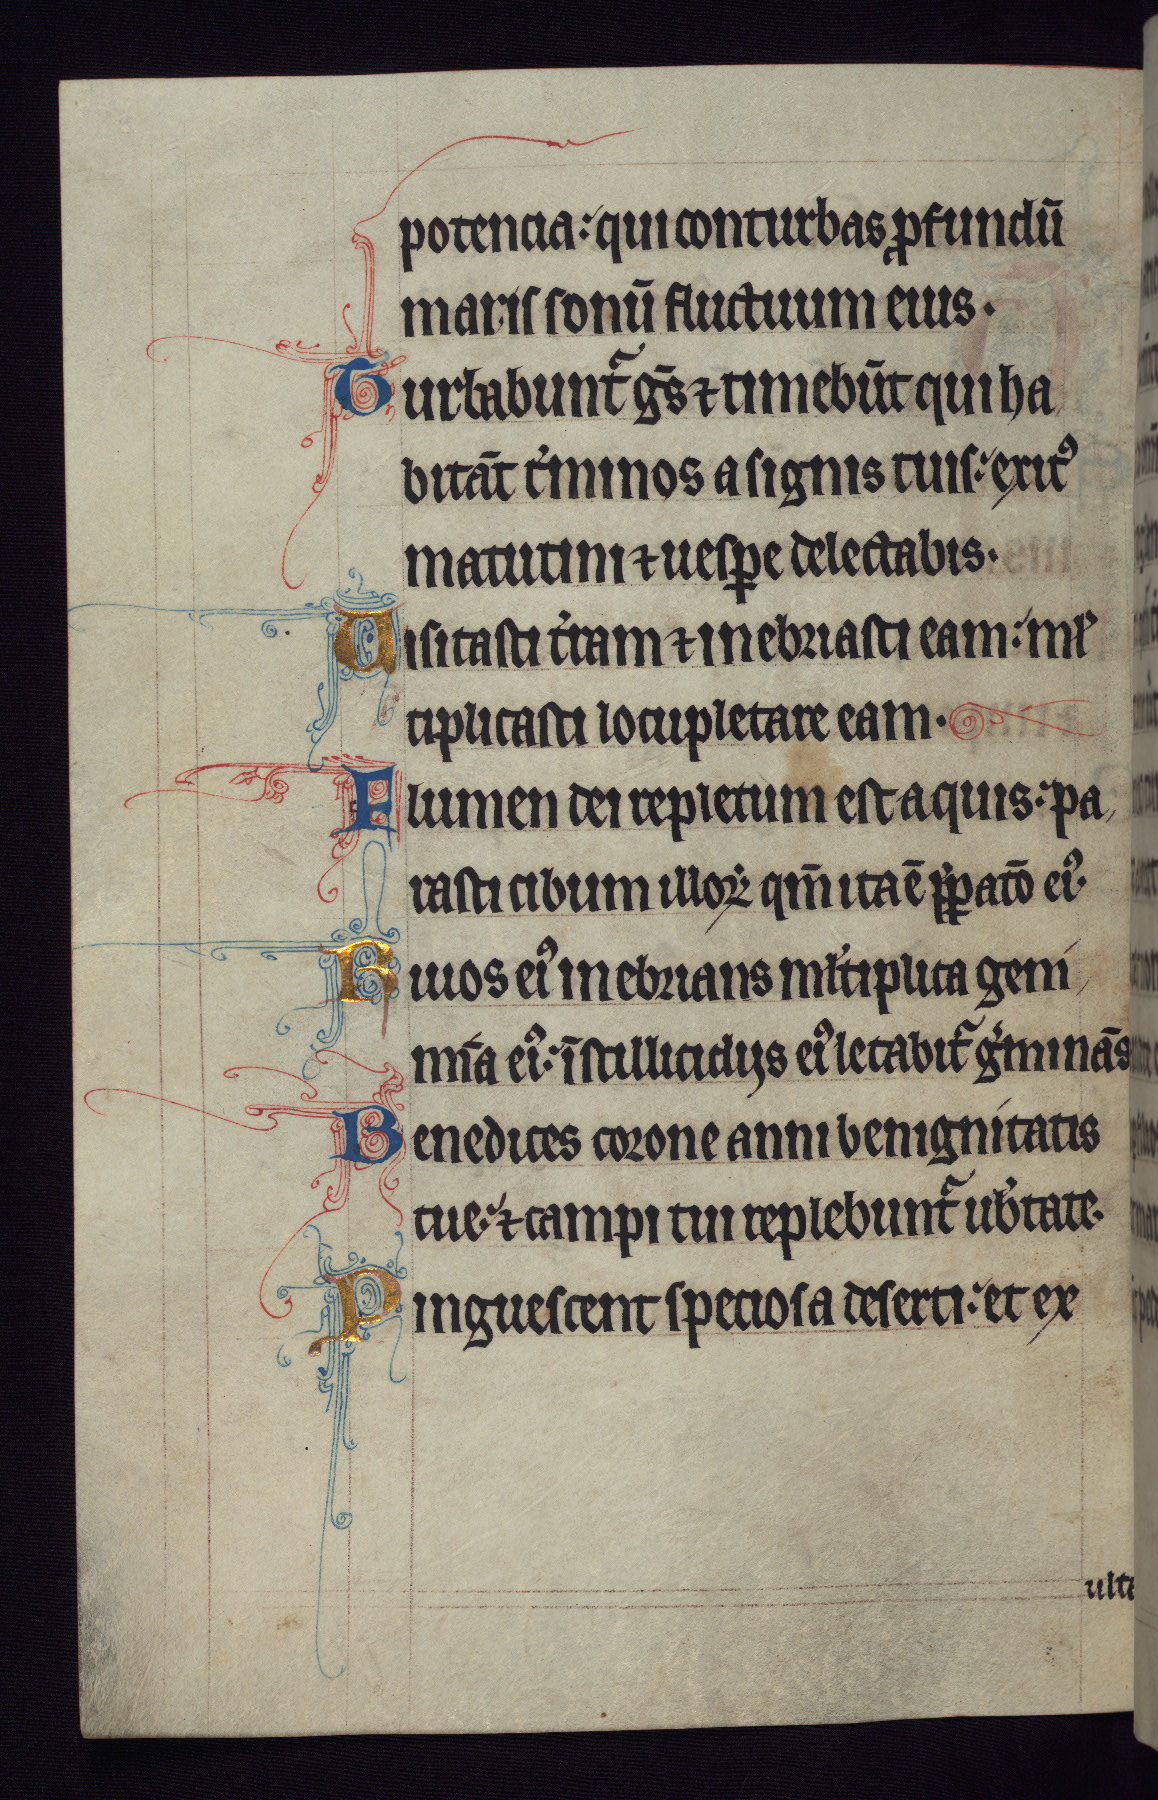 potencia: qui conturbas ꝓfundū
maris sonū fluctuum eius.
Turbabunt᷑ gēs ⁊ timebūt qui ha
bitāt t᷒minos a signis tuis: exitꝰ
matutini ⁊ uesꝑe delectabis.
Uisitasti t᷒ram ⁊ inebriasti eam: ml᷒
tiplicasti locupletare eam.
Flumen dei repletum est aquis: pa
rasti cibum illoꝝ qm̄ ita ē p̄ꝑatō eiꝰ.
Riuos eiꝰ inebrians ml᷒tiplica geni
mīa eiꝰ: ī stillicidijs eiꝰ letabit᷑ g᷒minās
Benedices corone anni benignitatis
tue: ⁊ campi tui replebunt᷑ ub᷒tate.
Pinguescent speciosa deserti: et ex
ulta